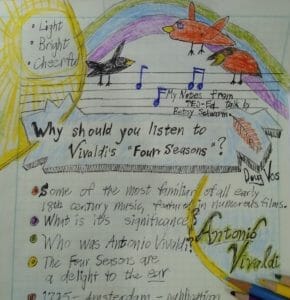 • Light
• Bright
• Cheerful
My Notes from
TED-Ed Talk by
Betsy Schwarm
Why should you listen to
Vivaldi's "Four Seasons"?
Doug Vos
Some of the most familiar of all early
18th century music, featured in numerous films.
What is its significance?
Who was Antonio Vivaldi?
The Four Seasons are
a delight to the ear
Antonio
Vivaldi
1725 - Amsterdam - publication